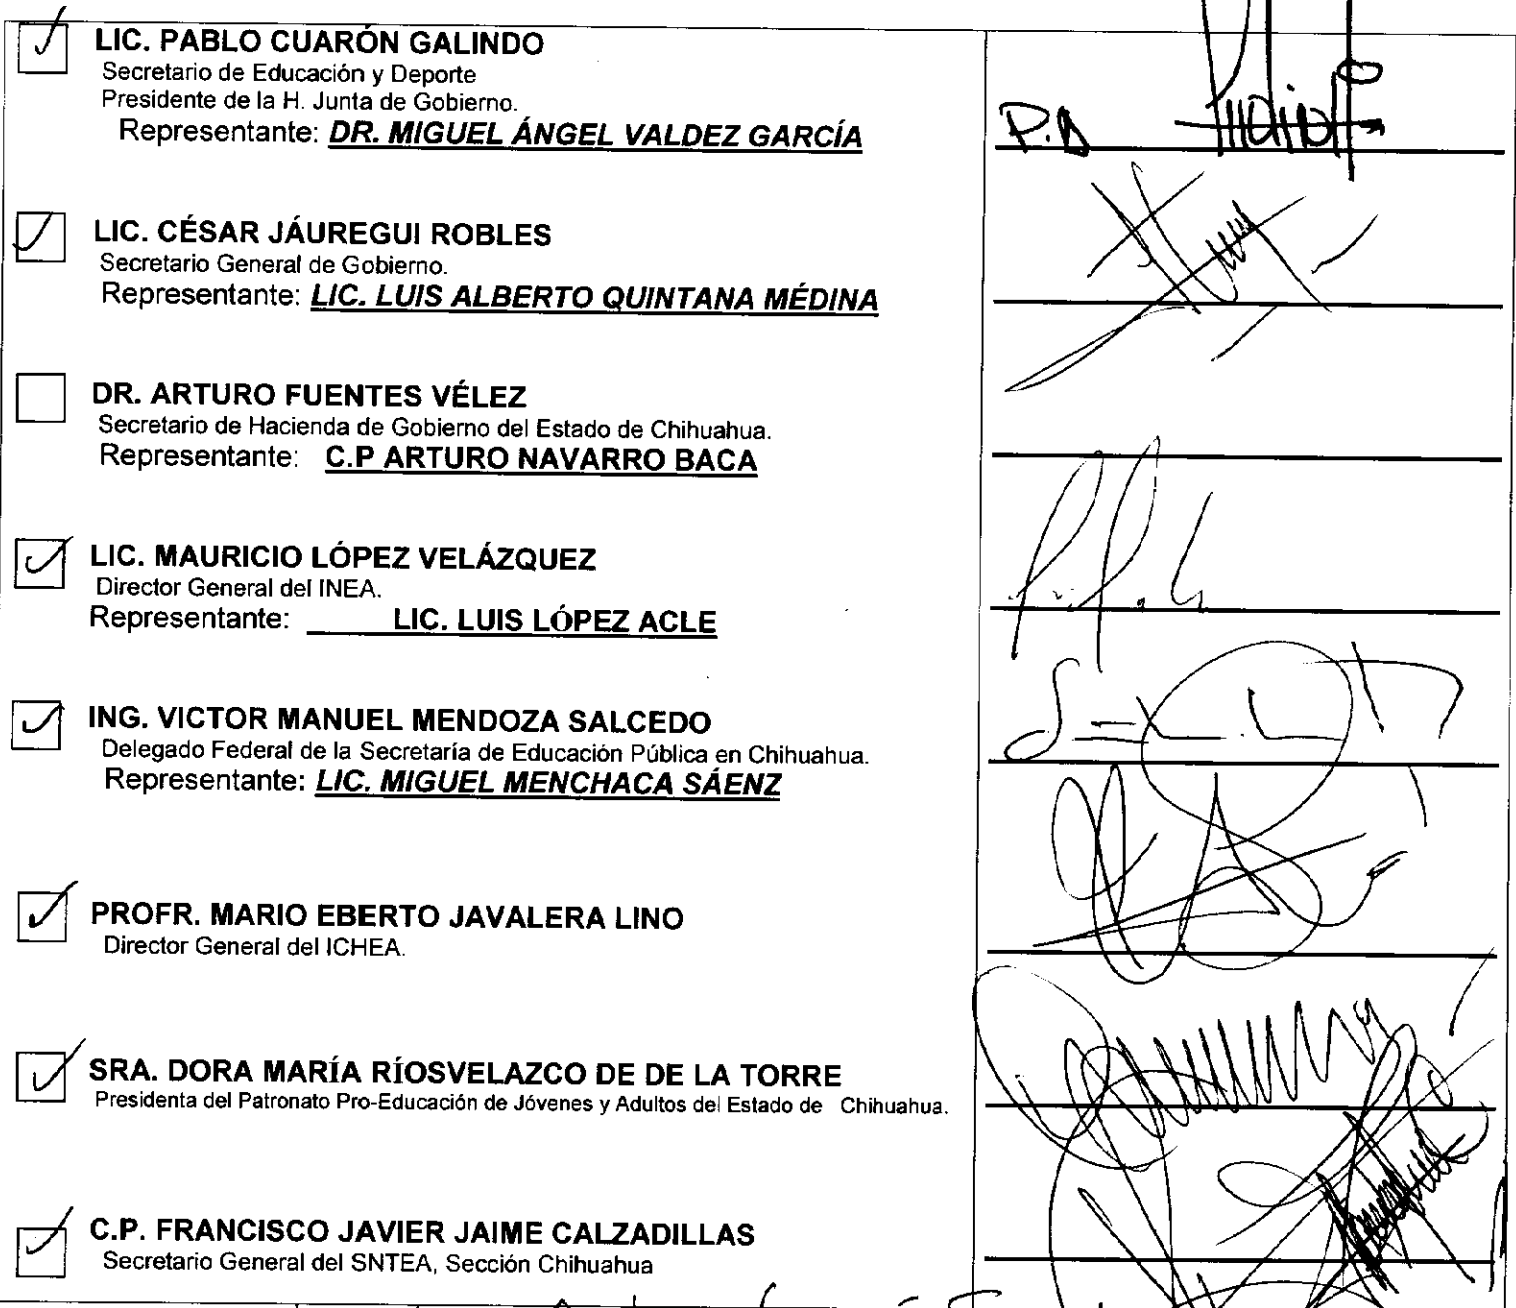 LIC. PABLO CUARÓN GALINDO
Secretario de Educación y Deporte
Presidente de la H. Junta de Gobierno.
Representante: DR. MIGUEL ÁNGEL VALDEZ GARCÍA
P.A
LIC. CÉSAR JÁUREGUI ROBLES
Secretario General de Gobierno.
Representante: LIC. LUIS ALBERTO QUINTANA MÉDINA
DR. ARTURO FUENTES VÉLEZ
Secretario de Hacienda de Gobierno del Estado de Chihuahua.
Representante: C.P ARTURO NAVARRO BACA
LIC. MAURICIO LÓPEZ VELÁZQUEZ
Director General del INEA.
Representante: LIC. LUIS LÓPEZ ACLE
ING. VICTOR MANUEL MENDOZA SALCEDO
Delegado Federal de la Secretaría de Educación Pública en Chihuahua.
Representante: LIC. MIGUEL MENCHACA SÁENZ
PROFR. MARIO EBERTO JAVALERA LINO
Director General del ICHEA.
SRA. DORA MARÍA RÍOSVELAZCO DE DE LA TORRE
Presidenta del Patronato Pro-Educación de Jóvenes y Adultos del Estado de Chihuahua.
C.P. FRANCISCO JAVIER JAIME CALZADILLAS
Secretario General del SNTEA, Sección Chihuahua